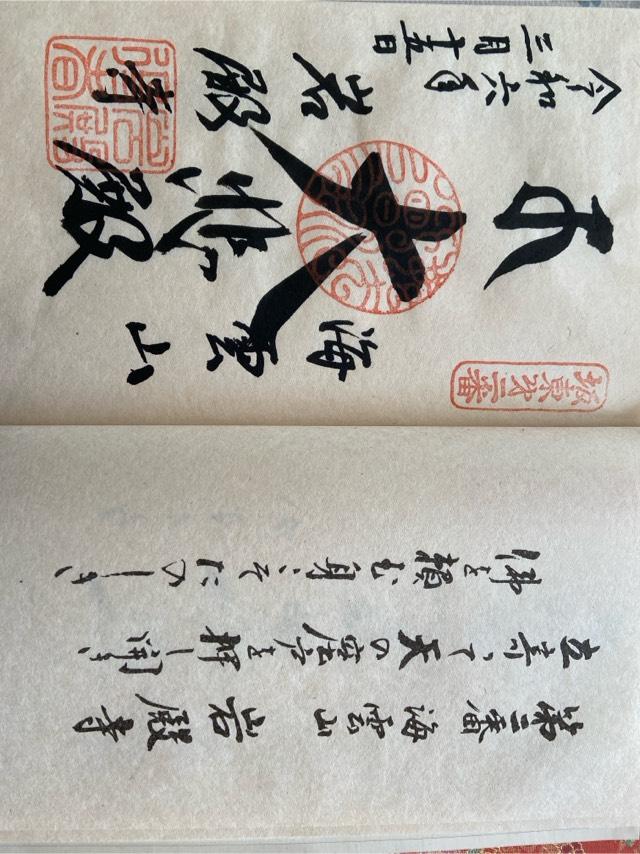 第二番 海雲山 岩殿寺
立寄りて天の岩戸を押し開き
佛を頼む身こそたのしき
坂東第二番
海雲山
大悲殿
岩殿寺
令和六年
三月十五日